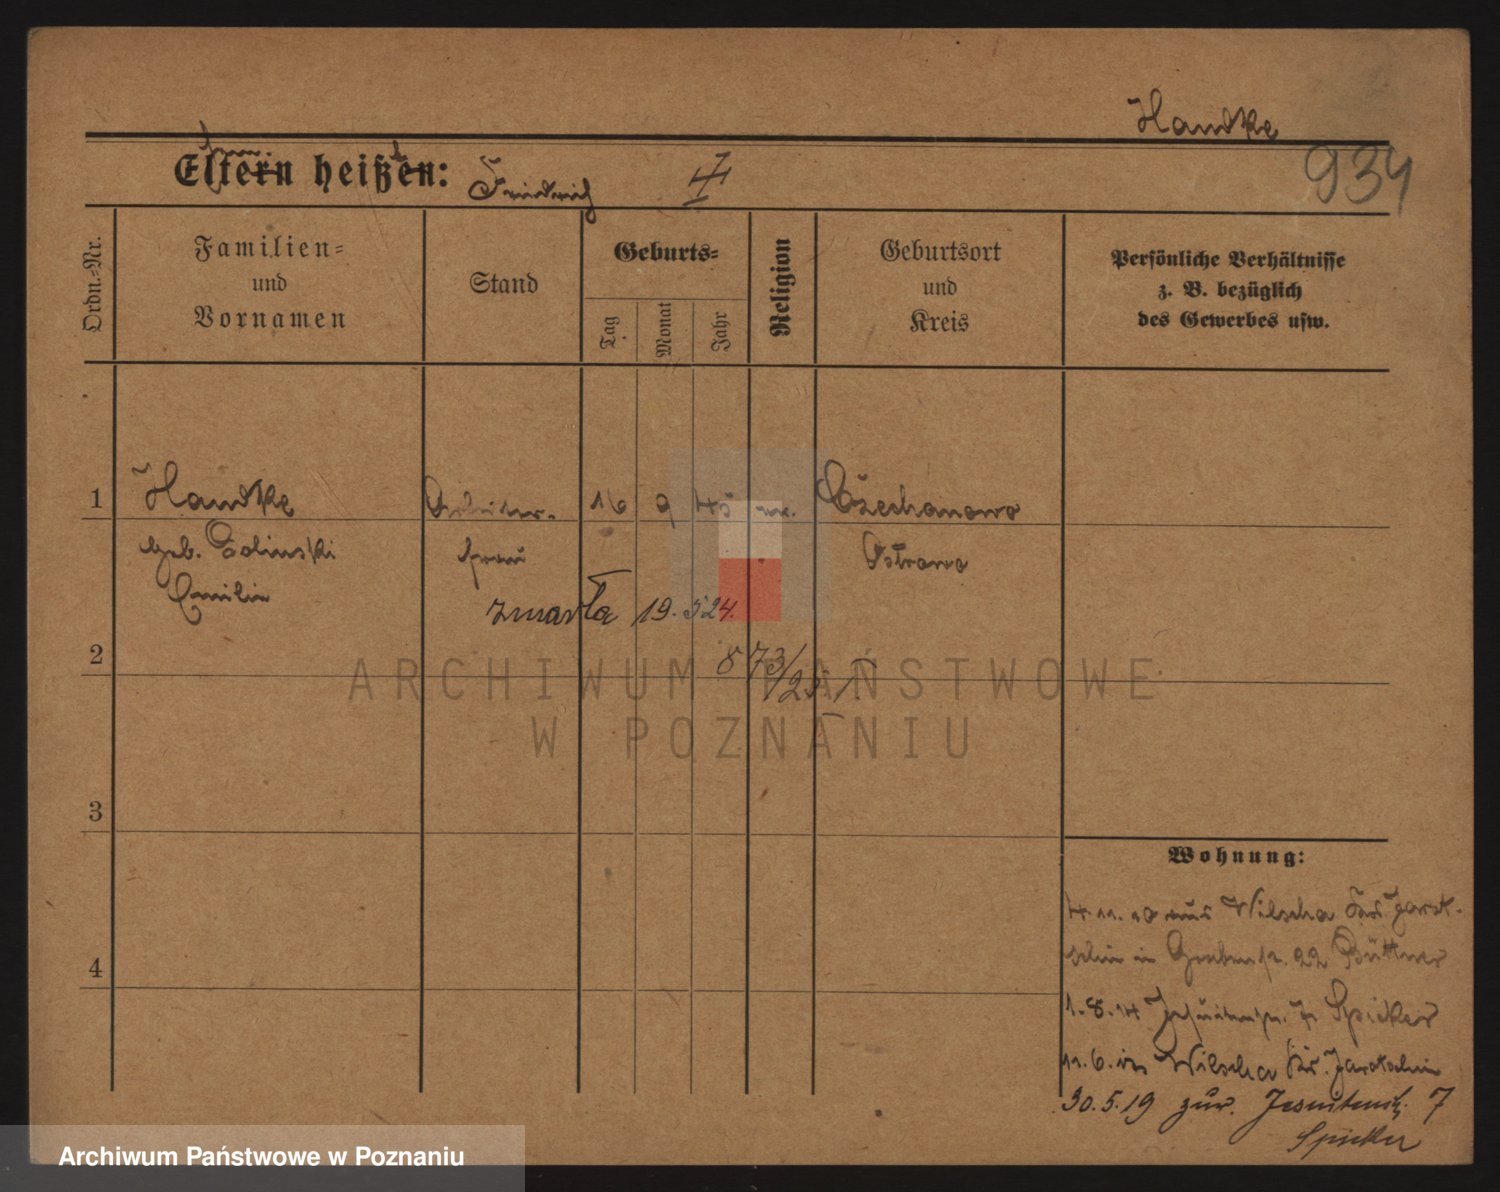 Handke
934
Eltern heißen: Friedrich
Ordn.-Nr.
Familien-
und
Vornamen
Stand
Geburts-
Tag
Monat
Jahr
Religion
Geburtsort
und
Kreis
Persönliche Verhältnisse
z. B. bezüglich
des Gewerbes usw.
1 Handke Arbeiter- 16 9 45 ev.
geb. frau Ostrowo
Emilie
zmarła 19. 5 24.
2
873/25
3
4
Wohnung:
4.11.10 aus Wilscha Krs. Jarot-
schin in Grabenstr. 22 Büttner
1.8.14 Jesuitenstr. 7 Spicker
11.6. Wilscha Krs. Jarotschin
30.5.19 zur. Jesuitenstr. 7
Spicker
ARCHIWUM PAŃSTWOWE
W POZNANIU
Archiwum Państwowe w Poznaniu